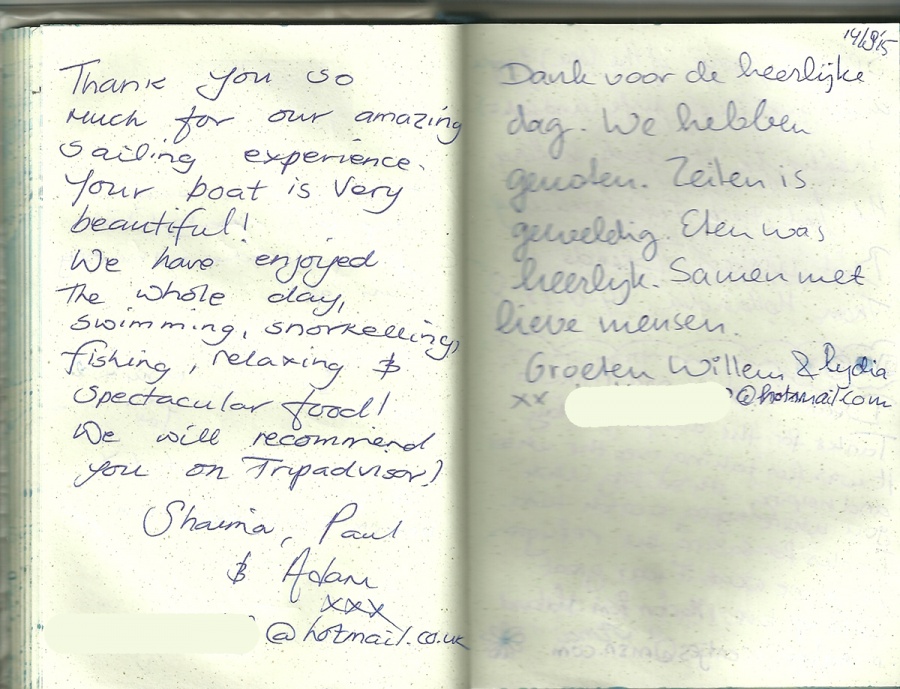 Thank you so
much for our amazing
sailing experience.
Your boat is very
beautiful!
We have enjoyed
the whole day,
swimming, snorkelling,
fishing, relaxing &
spectacular food!
We will recommend
you on Tripadvisor!
Shaima, Paul
& Adam
xxx
@hotmail.co.uk
14/9/15
Dank voor de heerlijke
dag. We hebben
genoten. Zeilen is
geweldig. Eten was
heerlijk. Samen met
lieve mensen.
Groeten Willem & Lydia
xx @hotmail.com